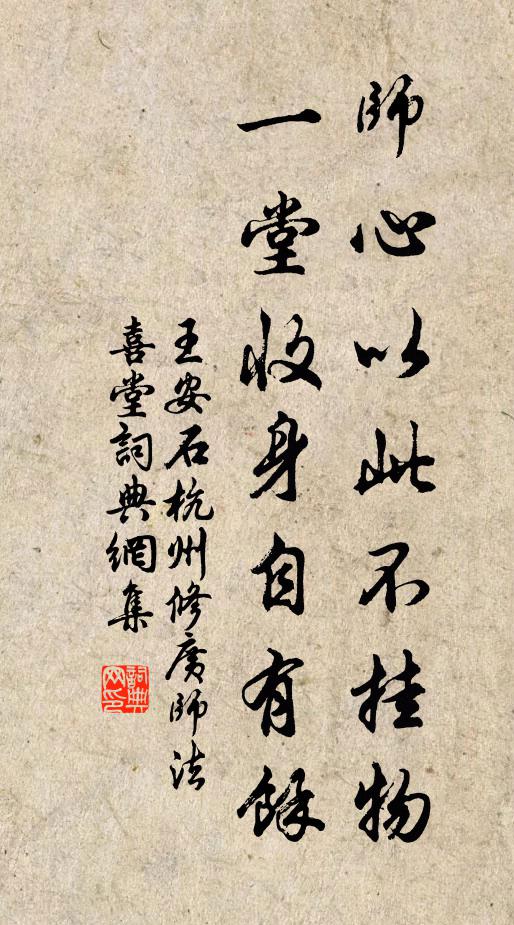 師心以此不挂物
一堂收身自有餘
王安石杭州修廣師法
喜堂詞典網集
詞典
网印